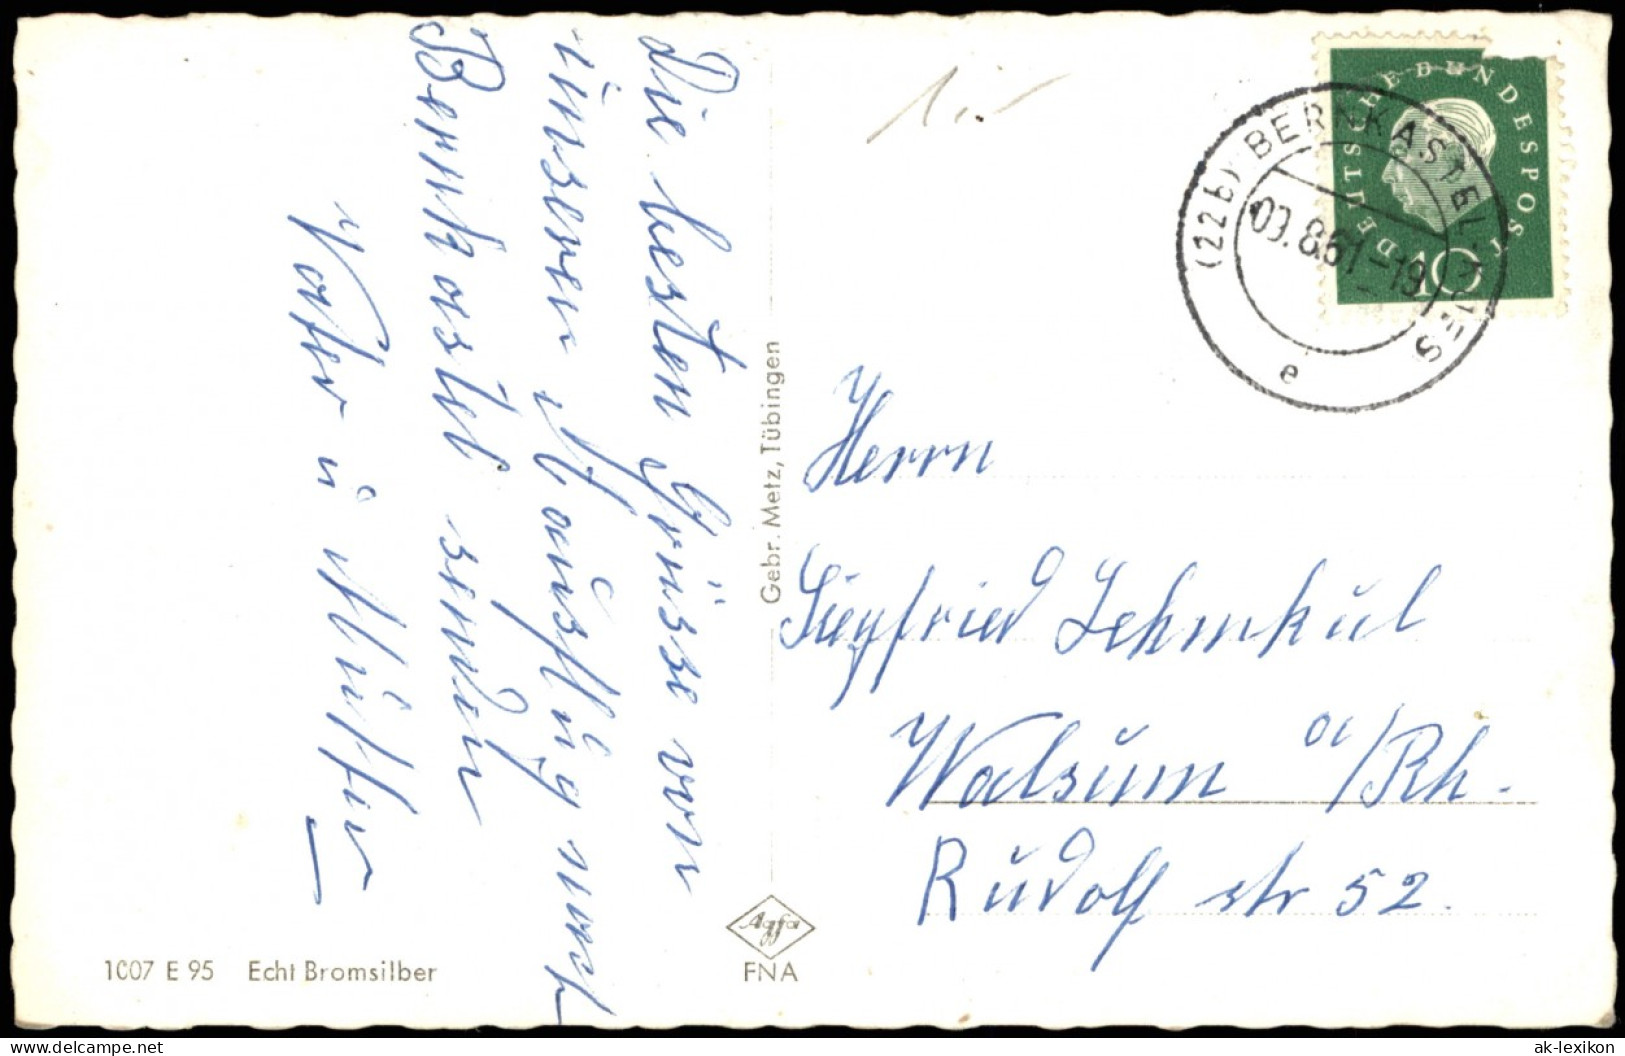 Die besten Grüsse von
unseren Ausflug nach
Bernkastel senden
Vater u Mutter
1007 E 95 Echt Bromsilber
Gebr. Metz, Tübingen
Agfa
FNA
DEUTSCHE BUNDESPOST
10
(22b) BERNKASTEL-KUES
03.8.61-19
e
Herrn
Siegfried Lehmkul
Walsum a/Rh.
Rudolf str 52.
delcampe.net
ak-lexikon